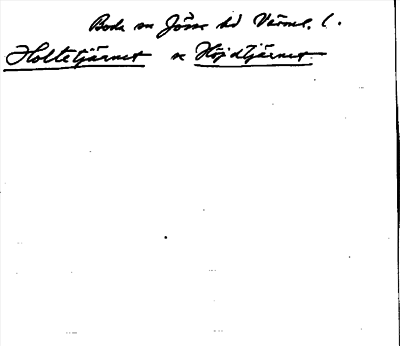 Boda sn Jösse hd Värml. l.
Holtetjärnet se Höjdtjärnet.